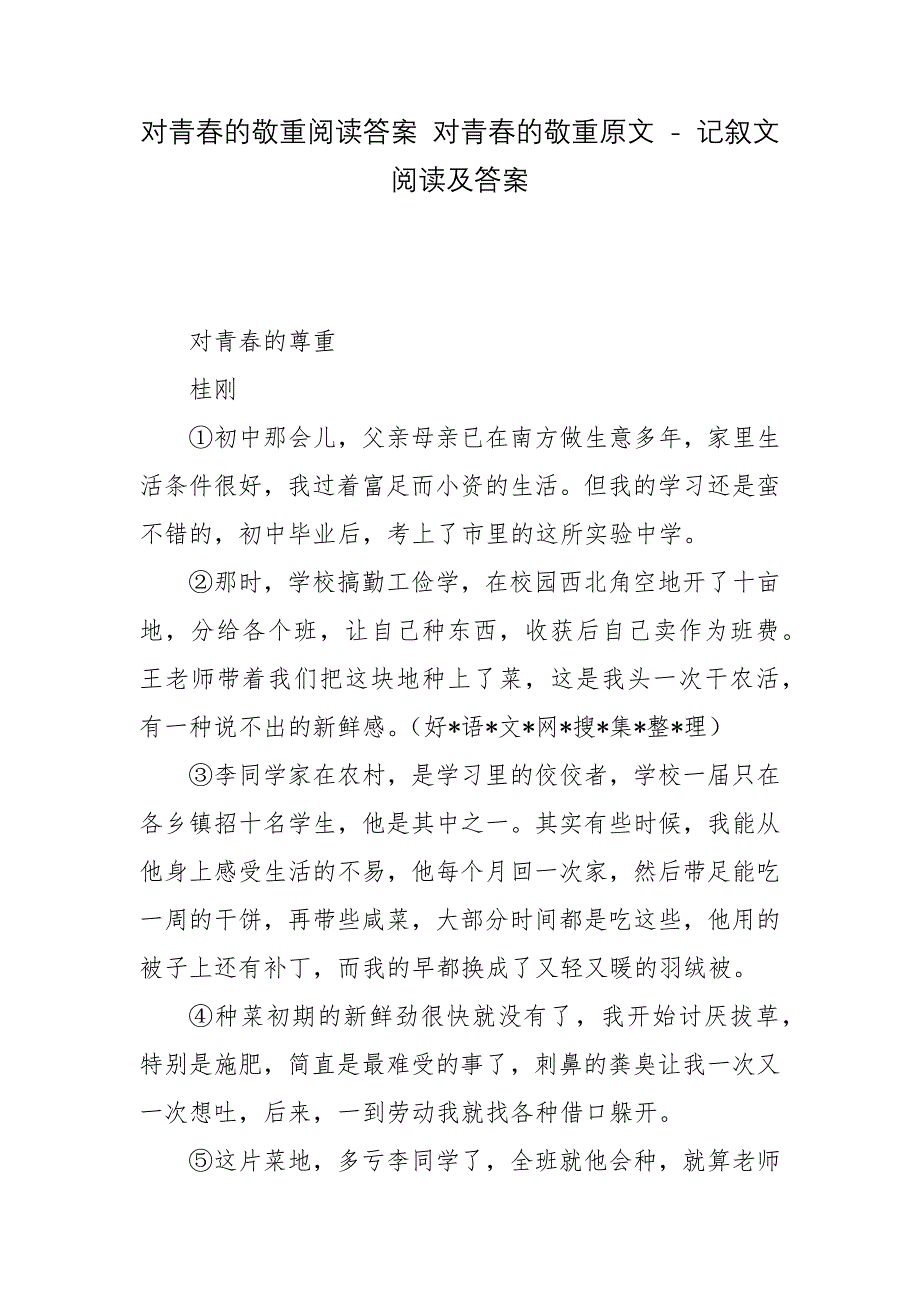 对青春的敬重阅读答案 对青春的敬重原文 - 记叙文
阅读及答案
对青春的尊重
桂刚
①初中那会儿，父亲母亲已在南方做生意多年，家里生
活条件很好，我过着富足而小资的生活。但我的学习还是蛮
不错的，初中毕业后，考上了市里的这所实验中学。
②那时，学校搞勤工俭学，在校园西北角空地开了十亩
地，分给各个班，让自己种东西，收获后自己卖作为班费。
王老师带着我们把这块地种上了菜，这是我头一次干农活，
有一种说不出的新鲜感。（好*语*文*网*搜*集*整*理）
③李同学家在农村，是学习里的佼佼者，学校一届只在
各乡镇招十名学生，他是其中之一。其实有些时候，我能从
他身上感受生活的不易，他每个月回一次家，然后带足能吃
一周的干饼，再带些咸菜，大部分时间都是吃这些，他用的
被子上还有补丁，而我的早都换成了又轻又暖的羽绒被。
④种菜初期的新鲜劲很快就没有了，我开始讨厌拔草，
特别是施肥，简直是最难受的事了，刺鼻的粪臭让我一次又
一次想吐，后来，一到劳动我就找各种借口躲开。
⑤这片菜地，多亏李同学了，全班就他会种，就算老师